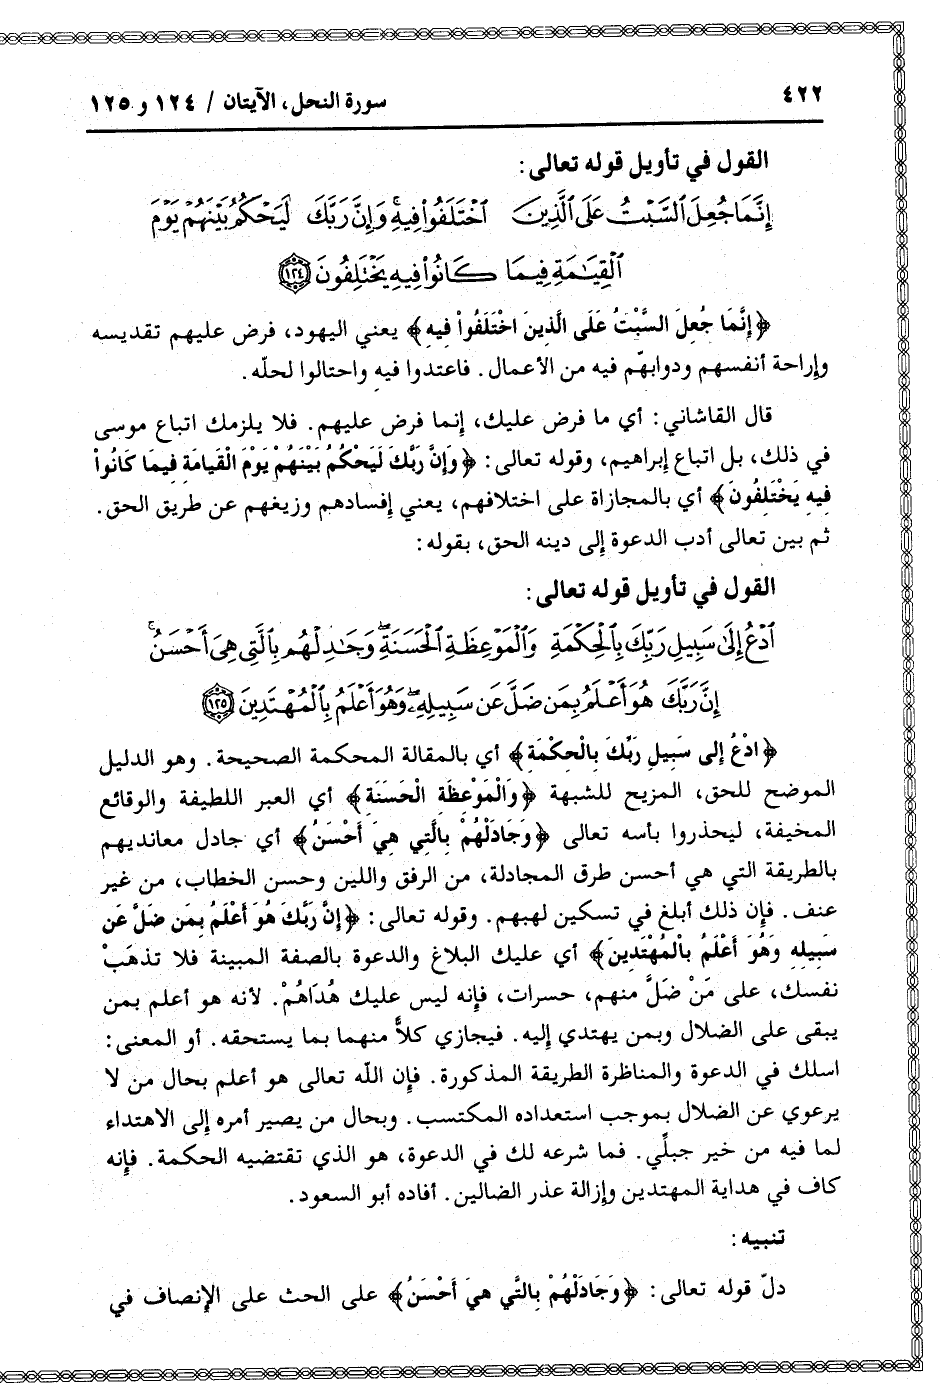 ٤٢٢
سورة النحل، الآيتان / ١٢٤ و ١٢٥
القول في تأويل قوله تعالى:
إِنَّمَا جُعِلَ ٱلسَّبْتُ عَلَى ٱلَّذِينَ ٱخْتَلَفُوا۟ فِيهِ ۚ وَإِنَّ رَبَّكَ لَيَحْكُمُ بَيْنَهُمْ يَوْمَ
ٱلْقِيَٰمَةِ فِيمَا كَانُوا۟ فِيهِ يَخْتَلِفُونَ ١٢٤
﴿إِنَّمَا جُعِلَ السَّبْتُ عَلَى الَّذِينَ اخْتَلَفُواْ فِيهِ﴾ يعني اليهود، فرض عليهم تقديسه
وإراحة أنفسهم ودوابهّم فيه من الأعمال. فاعتدوا فيه واحتالوا لحلّه.
قال القاشاني: أي ما فرض عليك، إنما فرض عليهم. فلا يلزمك اتباع موسى
في ذلك، بل اتباع إبراهيم، وقوله تعالى: ﴿وَإِنَّ رَبَّكَ لَيَحْكُمُ بَيْنَهُمْ يَوْمَ الْقَيامَةِ فِيمَا كَانُواْ
فِيهِ يَخْتَلِفُونَ﴾ أي بالمجازاة على اختلافهم، يعني إفسادهم وزيغهم عن طريق الحق.
ثم بين تعالى أدب الدعوة إلى دينه الحق، بقوله:
القول في تأويل قوله تعالى:
ٱدْعُ إِلَىٰ سَبِيلِ رَبِّكَ بِٱلْحِكْمَةِ وَٱلْمَوْعِظَةِ ٱلْحَسَنَةِ ۖ وَجَٰدِلْهُم بِٱلَّتِى هِىَ أَحْسَنُ ۚ
إِنَّ رَبَّكَ هُوَ أَعْلَمُ بِمَن ضَلَّ عَن سَبِيلِهِۦ ۖ وَهُوَ أَعْلَمُ بِٱلْمُهْتَدِينَ ١٢٥
﴿ادْعُ إِلى سَبِيلِ رَبِّكَ بِالْحِكْمَةِ﴾ أي بالمقالة المحكمة الصحيحة. وهو الدليل
الموضح للحق، المزيح للشبهة ﴿وَالْمَوْعِظَةِ الْحَسَنَةِ﴾ أي العبر اللطيفة والوقائع
المخيفة، ليحذروا بأسه تعالى ﴿وَجَادِلْهُمْ بِالَّتِي هِيَ أَحْسَنُ﴾ أي جادل معانديهم
بالطريقة التي هي أحسن طرق المجادلة، من الرفق واللين وحسن الخطاب، من غير
عنف. فإن ذلك أبلغ في تسكين لهبهم. وقوله تعالى: ﴿إِنَّ رَبَّكَ هُوَ أَعْلَمُ بِمَن ضَلَّ عَن
سَبِيلِهِ وَهُوَ أَعْلَمُ بِالْمُهْتَدِينَ﴾ أي عليك البلاغ والدعوة بالصفة المبينة فلا تذهَبْ
نفسك، على مَنْ ضَلَّ منهم، حسرات، فإنه ليس عليك هُدَاهُمْ. لأنه هو أعلم بمن
يبقى على الضلال وبمن يهتدي إليه. فيجازي كلاًّ منهما بما يستحقه. أو المعنى:
اسلك في الدعوة والمناظرة الطريقة المذكورة. فإن الله تعالى هو أعلم بحال من لا
يرعوي عن الضلال بموجب استعداده المكتسب. وبحال من يصير أمره إلى الاهتداء
لما فيه من خير جبلّي. فما شرعه لك في الدعوة، هو الذي تقتضيه الحكمة. فإنه
كاف في هداية المهتدين وإزالة عذر الضالين. أفاده أبو السعود.
تنبيه:
دلّ قوله تعالى: ﴿وَجَادِلْهُمْ بِالَّتي هِيَ أَحْسَنُ﴾ على الحث على الإنصاف في